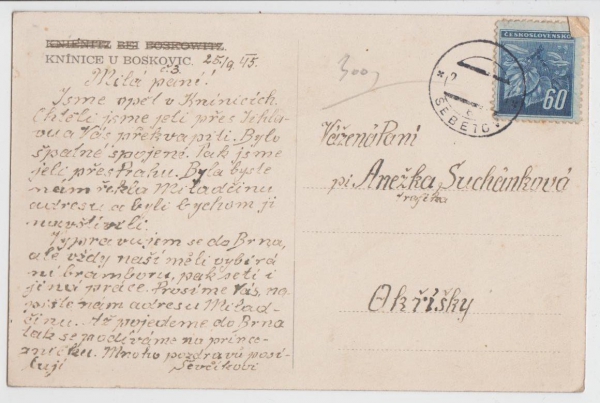 KNIENITZ BEI BOSKOWITZ.
KNÍNICE U BOSKOVIC. 25/9. 45.
č.3.
Milá paní!
Jsme opět v Knínicích.
Chtěli jsme jeti přes Jihla-
vu a Vás překvapiti. Bylo
špatné spojení. Tak jsme
jeli přes Prahu. Byla byste
nám řekla Miladčinu
adresu a byli bychom ji
navštívili.
Vypravujem se do Brna,
ale vždy naši měli vybírá
ní bramborů, pak seti i
jiné práce. Prosíme Vás, na
pište nám adresu Milad-
činu. Až pojedeme do Brna
tak se podíváme na prince-
zničku. Mnoho pozdravů posí-
lají Ševčíkovi
ČESKOSLOVENSKO
60
ŠEBETOV
Vážená Paní
pí. Anežka Suchánková
Okříšky